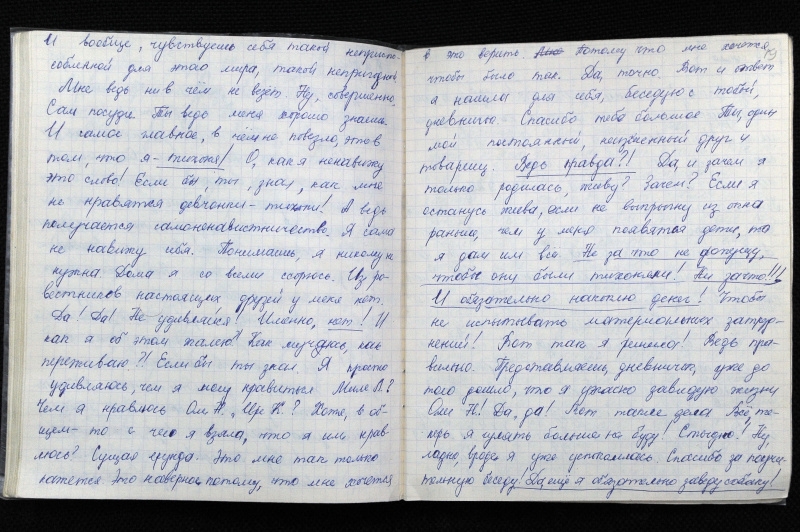 И вообще, чувствуешь себя такой неприспо-
собленной для этого мира, такой непригодной
Мне ведь ни в чём не везет. Ну, совершенно.
Сам посуди. Ты ведь меня хорошо знаешь.
И самое главное, в чём не повезло, это в
том, что я - тихоня! О, как я ненавижу
это слово! Если бы, ты, знал, как мне
не нравятся девчонки - тихони! А ведь
получается самоненавистничество. Я сама
не навижу себя. Понимаешь, я никому не
нужна. Дома я со всеми ссорюсь. Из ро-
вестников настоящих друзей у меня нет.
Да! Да! Не удивляйся! Именно, нет! И
как я об этом жалею! Как мучаюсь, как
переживаю?! Если бы ты знал. Я просто
удивляюсь, чем я могу нравиться Миле Л.?
Чем я нравлюсь Оле Н., Ире К.? Хотя, в об-
щем-то с чего я взяла, что я им нрав-
люсь? Сущая ерунда. Это мне так только
кажется. Это наверное, потому, что мне хочется
в это верить. Потому что мне хочется,
чтобы было так. Да, точно. Вот и ответ
я нашла для себя, беседую с тобой,
дневничок. Спасибо тебе большое. Ты, один
мой постоянный, неизменный друг и
товарищ. Ведь правда?! Да, и зачем я
только родилась, живу? Зачем? Если я
останусь жива, если не выпрыгну из окна
раньше, чем у меня появятся дети, то
я дам им всё. Не за что не допущу,
чтобы они были тихонями! Ни за что!!!
И обязательно накоплю денег! Чтобы
не испытывать материальных затруд-
нений! Вот так я решила! Ведь пра-
вильно. Представляешь, дневничок, уже до
того дошло, что я ужасно завидую жизни
Оли Н! Да, да! Вот такие дела. Всё, те-
перь я гулять больше не буду! Стыдно! Ну
ладно, вроде я уже успокоилась. Спасибо за поучи-
тельную беседу! Да, ещё я обязательно заведу собаку!